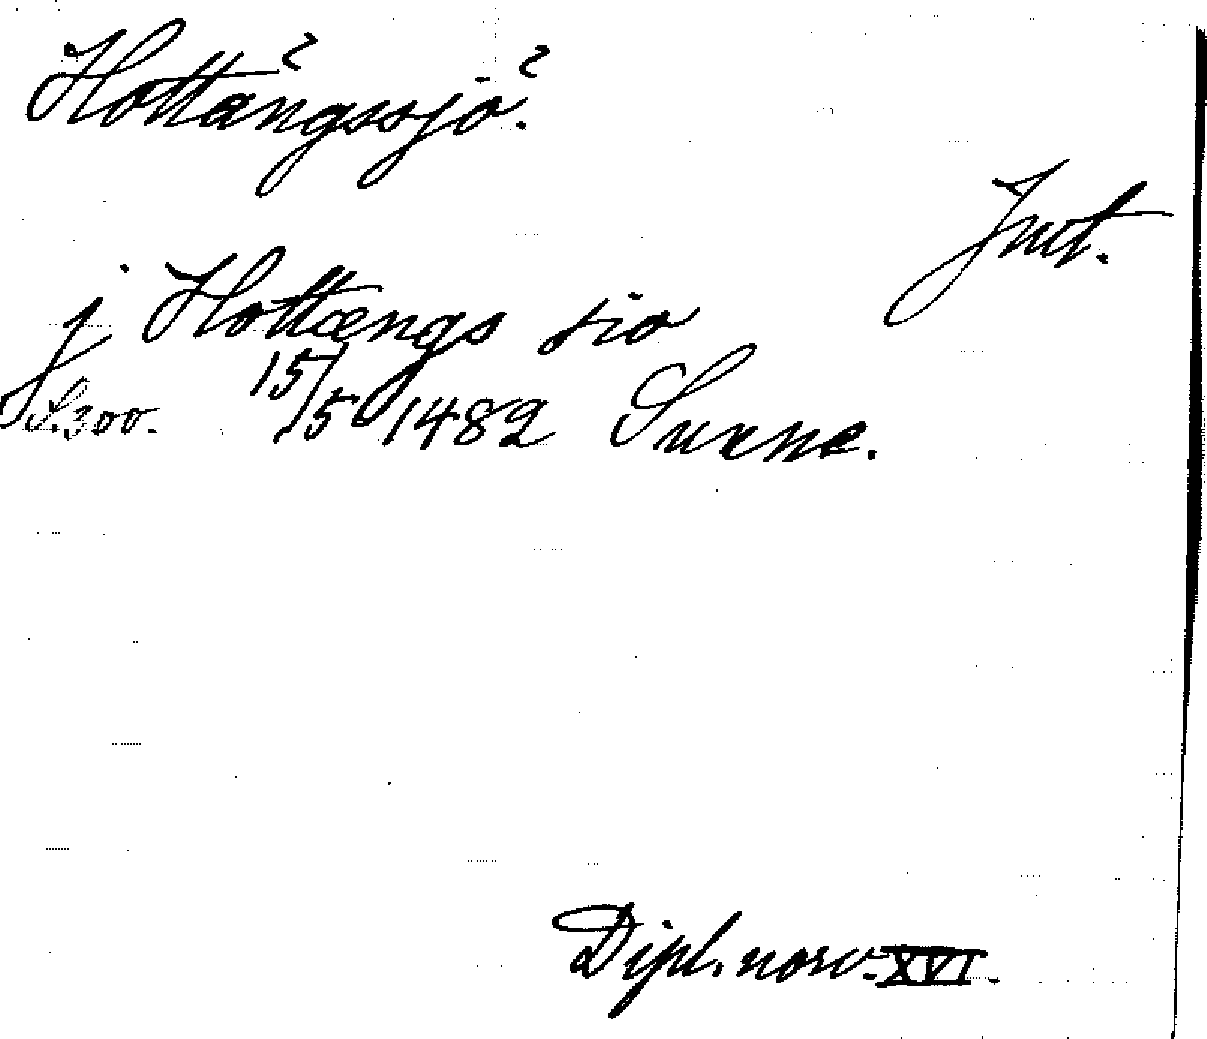 Hottängssjö.
Jmt.
j Hottængs sio
S. 300. 15/5 1482 Sunne.
Dipl. norv. XVI.